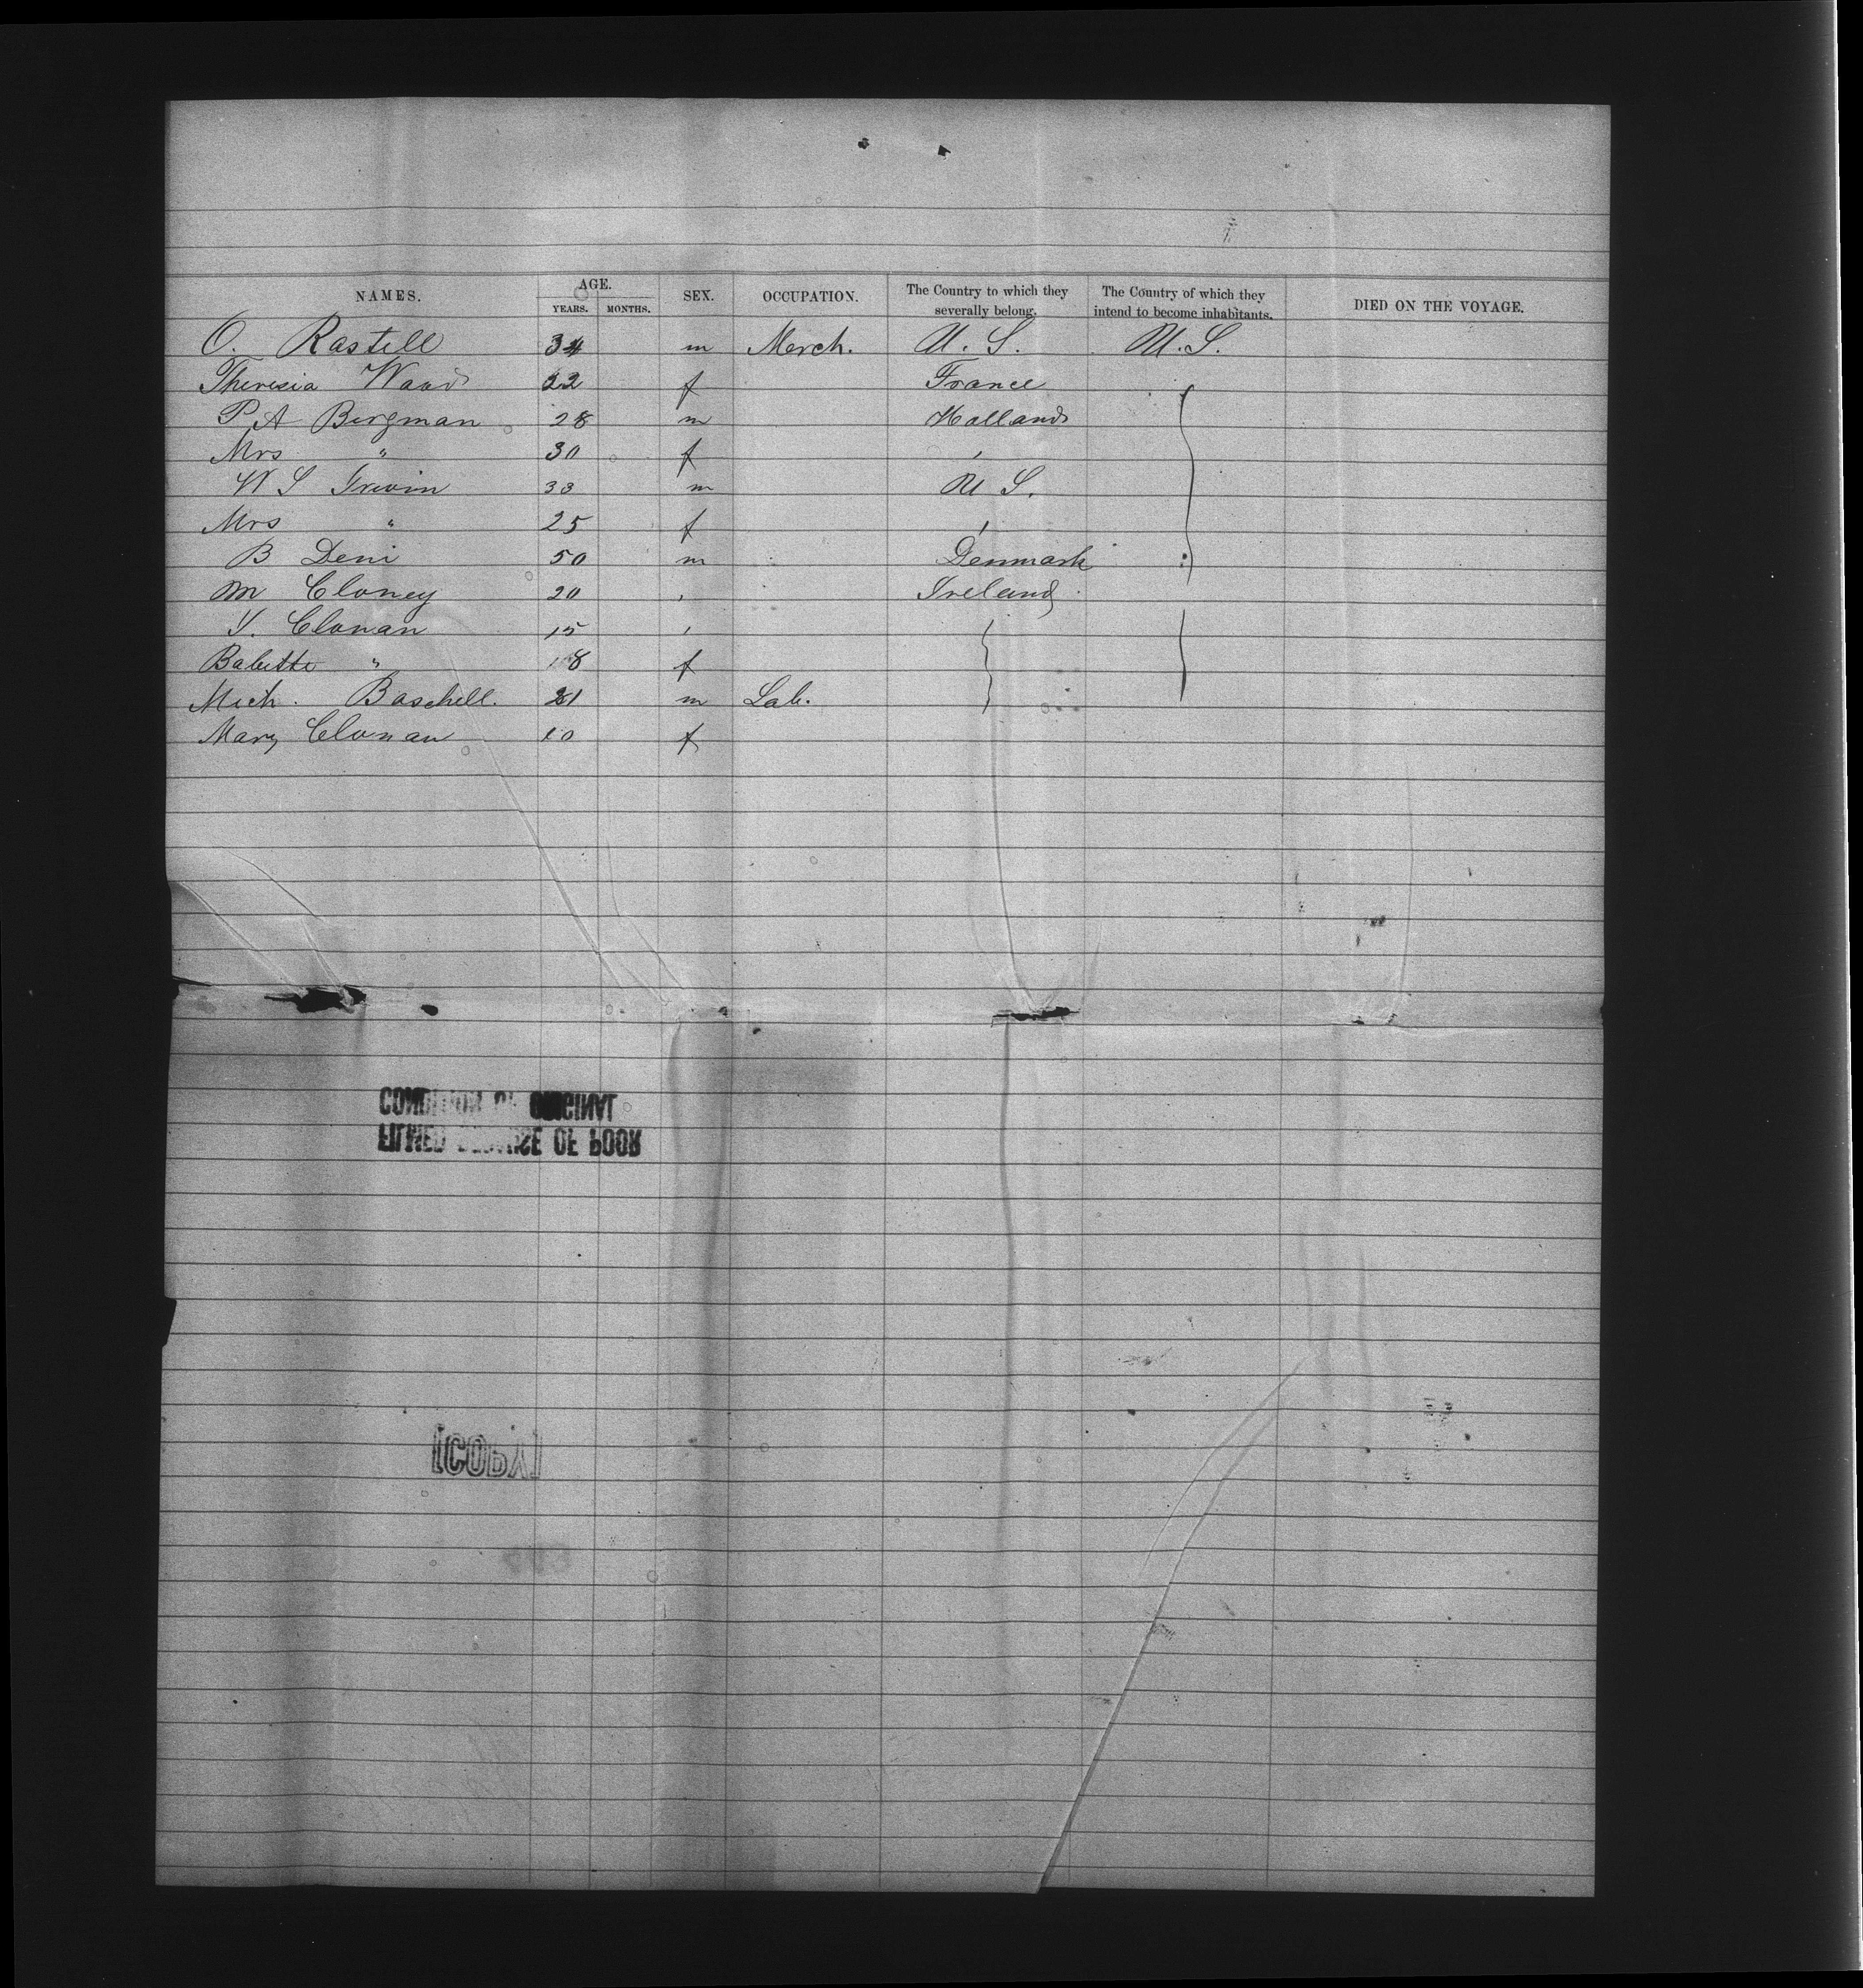 NAMES. AGE. SEX. OCCUPATION. The Country to which they severally belong. The Country of which they intend to become inhabitants. DIED ON THE VOYAGE.
YEARS. MONTHS.
O. Rastell 34 m Merch. U. S. U. S.
Theresia 22 f France
P A Bergman 28 m Holland
Mrs " 30 f '
W S Irwin 33 m U S.
Mrs " 25 f '
B Deni 50 m Denmark
M Cloney 20 ' Ireland
Clonan 15 '
Babette " 18 f
Mich. Baschell. 21 m Lab.
Mary Clonan 10 f
CONDITION OF ORIGINAL
FILMED BECAUSE OF POOR
[COPY]